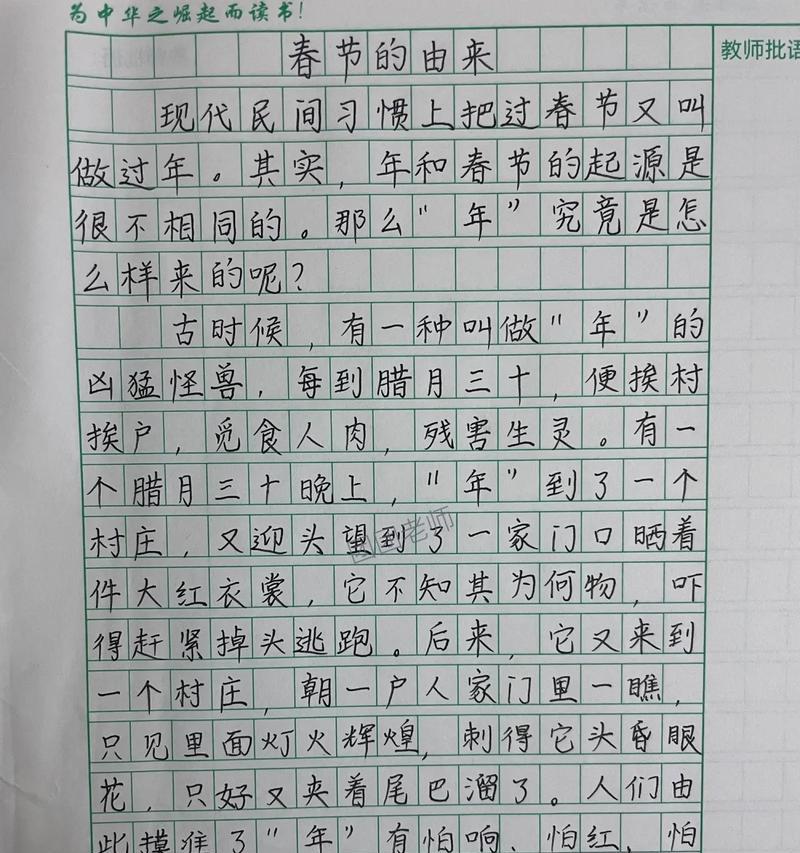 为中华之崛起而读书！
教师批语
春节的由来
现代民间习惯上把过春节又叫
做过年。其实，年和春节的起源是
很不相同的。那么“年”究竟是怎
么样来的呢？
古时候，有一种叫做“年”的
凶猛怪兽，每到腊月三十，便挨村
挨户，觅食人肉，残害生灵。有一
个腊月三十晚上，“年”到了一个
村庄，又迎头望到了一家门口晒着
件大红衣裳，它不知其为何物，吓
得赶紧掉头逃跑。后来，它又来到
一个村庄，朝一户人家门里一瞧，
只见里面灯火辉煌，刺得它头昏眼
花，只好又夹着尾巴溜了。人们由
此摸准了“年”有怕响、怕红、怕